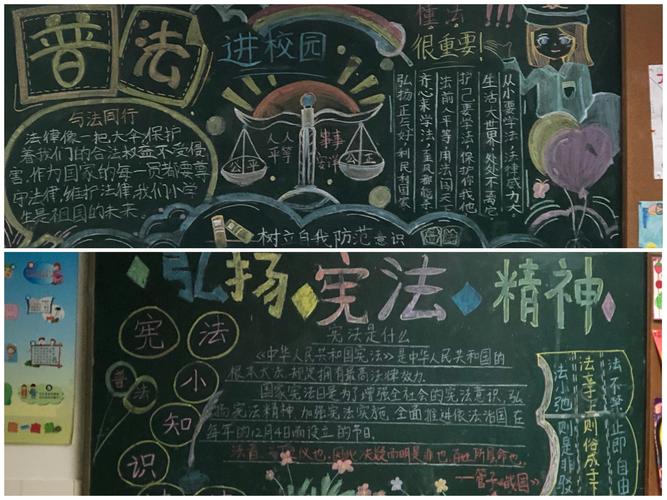 普法
进校园
懂法
很重要!
!!!
与法同行
法律像一把大伞,保护
着我们的合法权益不受侵
害,作为国家的每一员都要遵
守法律,维护法律,我们小学
生是祖国的未来。
人人
平等
公平
公正
从小要学法,法律威力大
生活大世界,处处不离它
护己要学法,保护你我他
法前人平等,用法闯天下
齐心来学法
弘扬正与好,利民利国家
树立自我防范意识
弘扬宪法精神
宪法
普法小
知
识
宪法是什么
《中华人民共和国宪法》是中华人民共和国的
根本大法,规定拥有最高法律效力.
国家宪法日是为了增强全社会的宪法意识,弘
扬宪法精神,加强宪法实施,全面推进依法治国在
每年的12月4日而设立的节日.
——管子《
法不禁止即自由
法立
则俗成于
法小弛
则是非驳